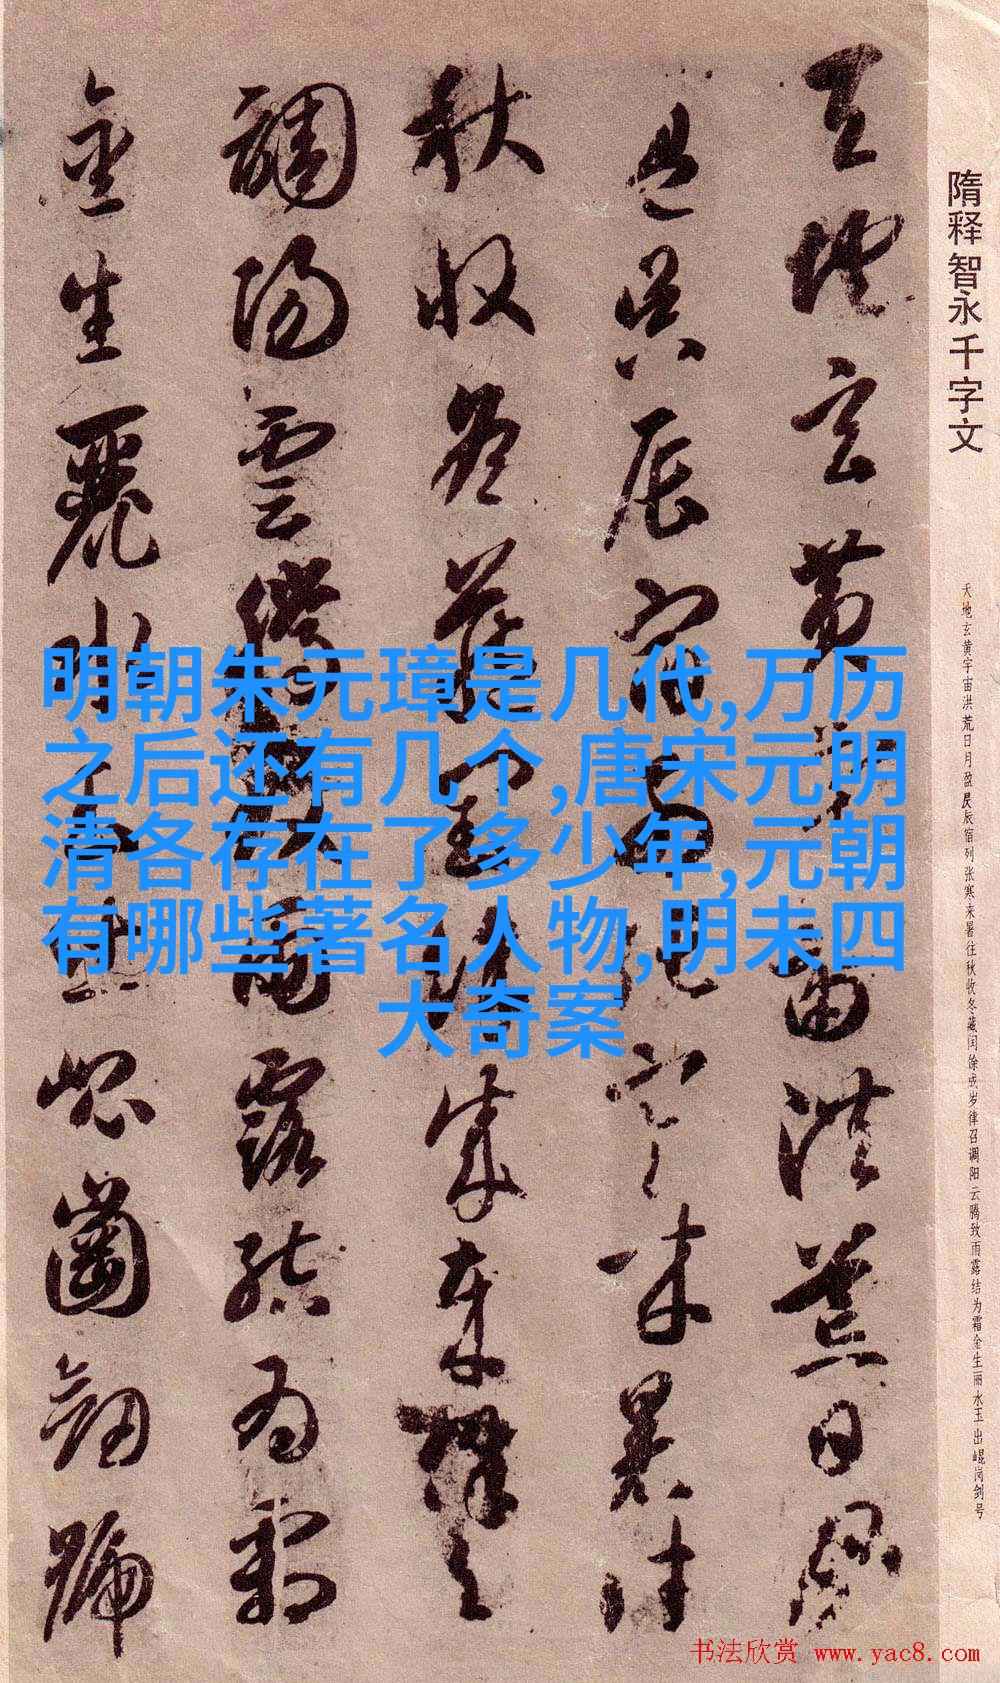 隋释智永千字文
天地玄黄宇宙洪荒日月盈昃辰宿列张寒来暑往秋收冬藏闰馀成岁律召调阳云腾致雨露结为霜金生丽水玉出崐岗剑号
天地玄黄宇宙洪荒日月
盈昃辰宿列張寒来暑往
秋收冬藏閏餘成歲律召
調陽雲騰致雨露結為霜
金生麗水玉出崐崗劍號
明朝朱元璋是几代,万历
之后还有几个,唐宋元明
清各存在了多少年,元朝
有哪些著名人物,明末四
大奇案
书法欣赏 www.yac8.com